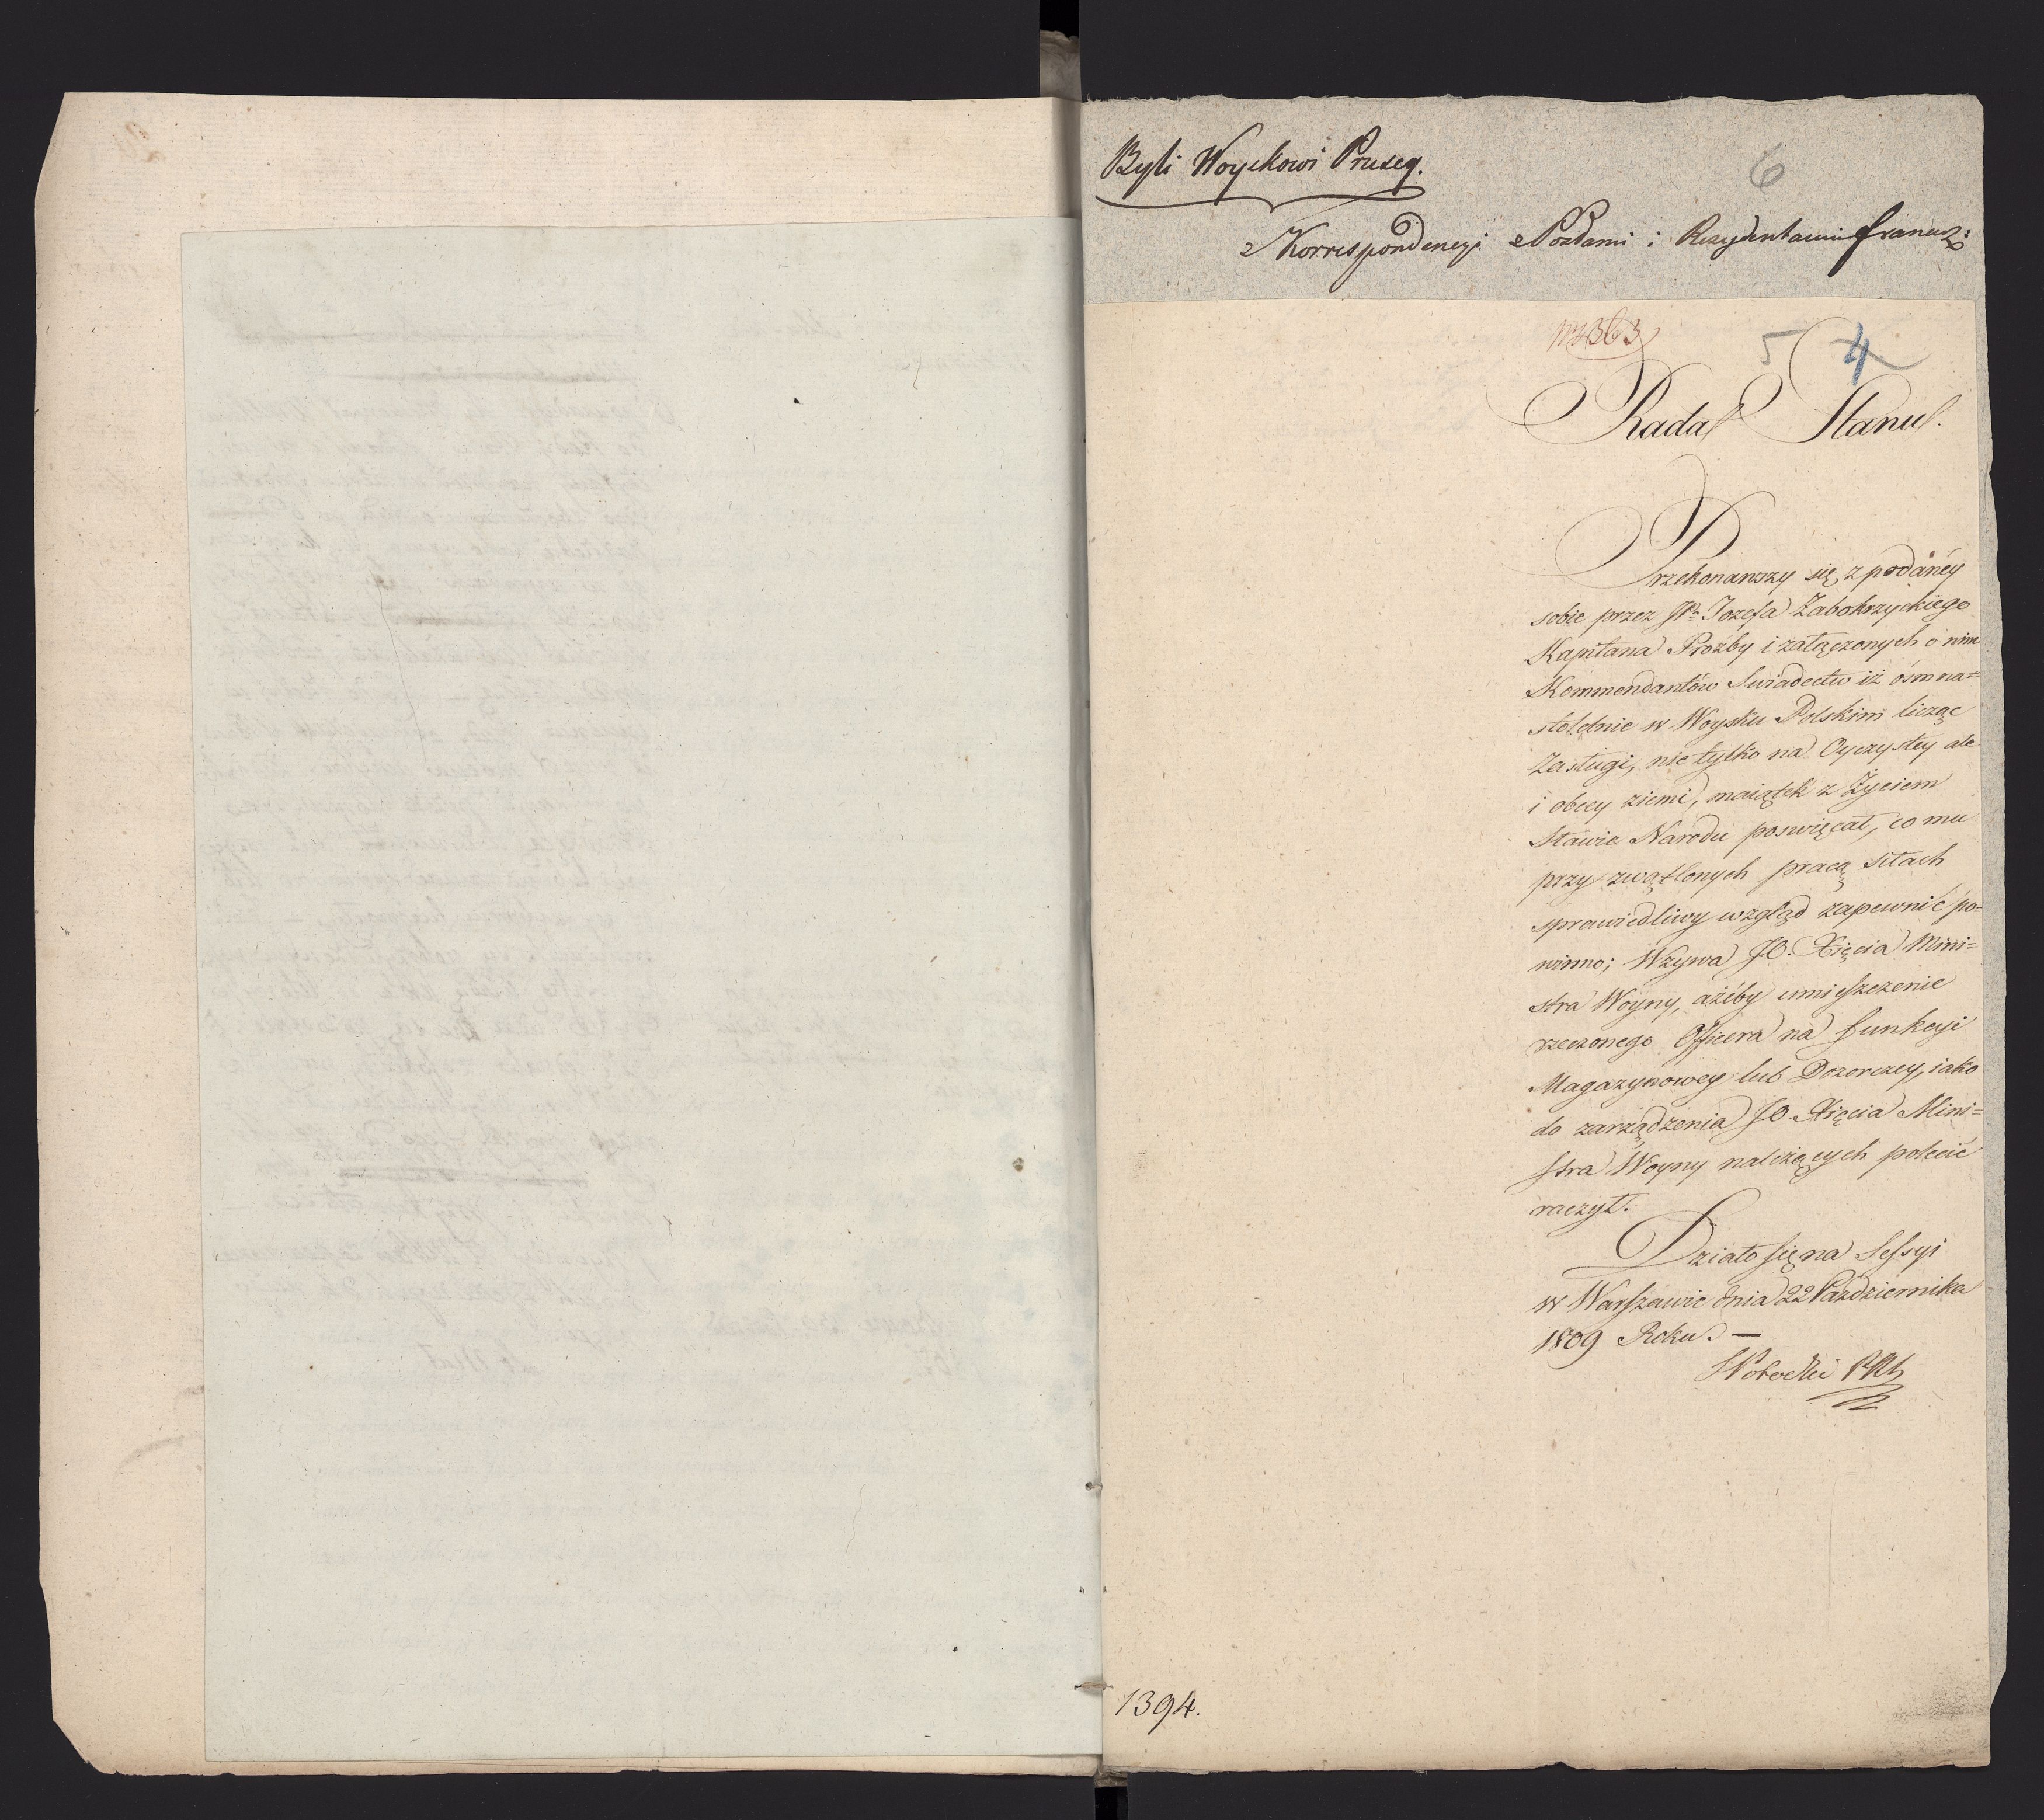 Byli Woyskowi Pruscy.
6
z Korrespondencyi z Posłami i Rezydentami francuz:
Nro 363
5 4
Rada Stanu.
Przekonawszy się z podanéy
sobie przez JP. Jozefa Zabokrzyckiego
Kapitana Proźby i załączonych o nim
Kommendantów Swiadectw iż ósmna=
stoletnie w Woysku Polskim licząc
Zasługi, nie tylko na Oyczystey ale
i obcey ziemi, maiątek z Życiem
Sławie Narodu poswięcał, co mu
przy zwątlonych pracą siłach
sprawiedliwy wzgląd zapewnić po=
winno; Wzywa J.O. Xięcia Mini=
stra Woyny, ażeby umieszczenie
rzeczonego Officera na funkcyi
Magazynowey lub Dozorczey, iako
do zarządzenia J.O. Xięcia Mini=
stra Woyny należących polecić
raczył.
Działo się na Sessyi
w Warszawie dnia 22 Pazdziernika
1809 Roku. —
1394.